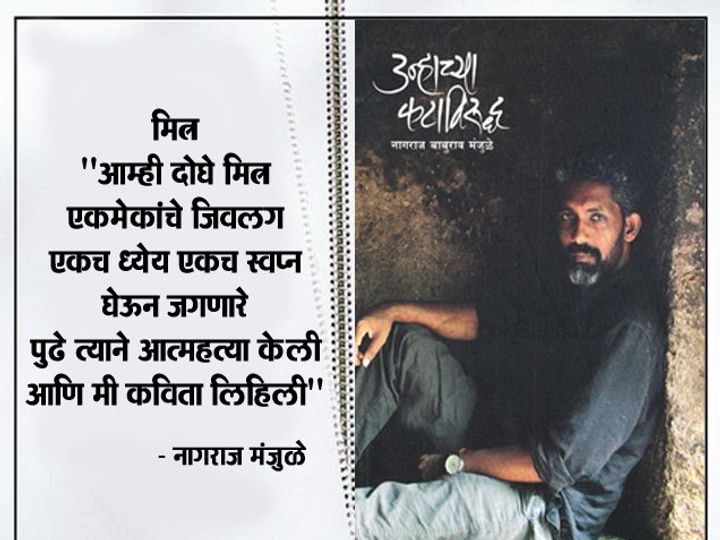 मित्र
"आम्ही दोघे मित्र
एकमेकांचे जिवलग
एकच ध्येय एकच स्वप्न
घेऊन जगणारे
पुढे त्याने आत्महत्या केली
आणि मी कविता लिहिली"
- नागराज मंजुळे
उन्हाच्या
कटाविरुद्ध
नागराज बाबुराव मंजुळे